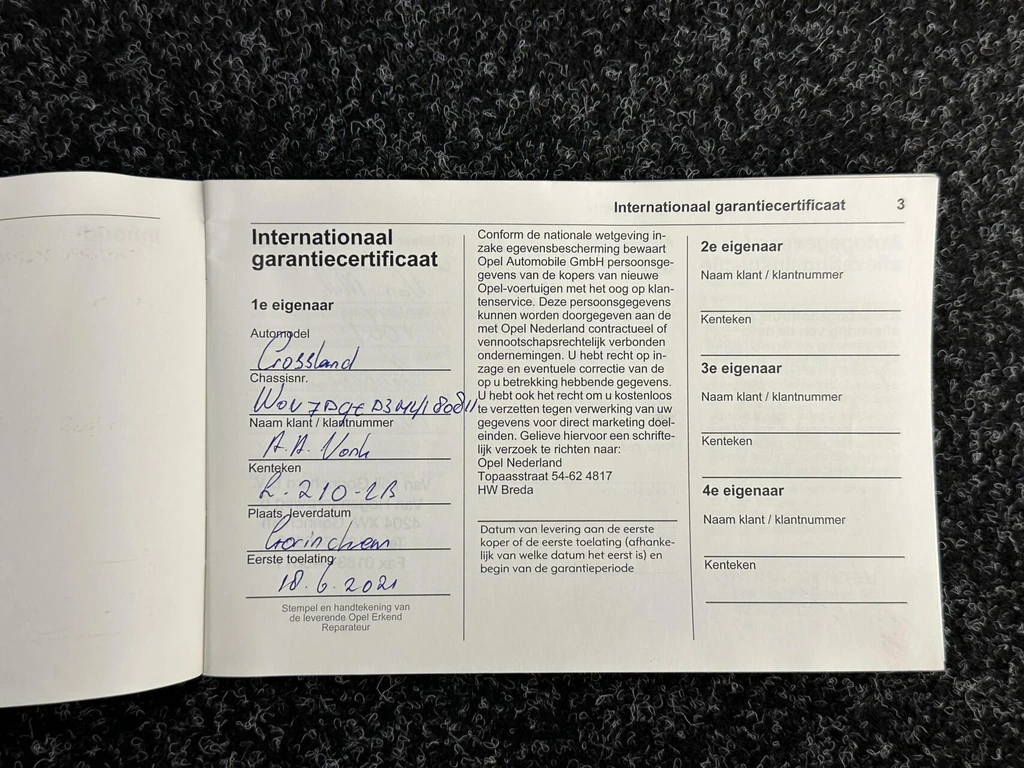 Internationaal garantiecertificaat 3
Internationaal
garantiecertificaat
1e eigenaar
Automodel
Crossland
Chassisnr.
Naam klant / klantnummer
A.A. Vonk
Kenteken
L-210-LB
Plaats, leverdatum
Gorinchem
Eerste toelating
18.6.2021
Stempel en handtekening van
de leverende Opel Erkend
Reparateur
Conform de nationale wetgeving in-
zake egevensbescherming bewaart
Opel Automobile GmbH persoonsge-
gevens van de kopers van nieuwe
Opel-voertuigen met het oog op klan-
tenservice. Deze persoonsgegevens
kunnen worden doorgegeven aan de
met Opel Nederland contractueel of
vennootschapsrechtelijk verbonden
ondernemingen. U hebt recht op in-
zage en eventuele correctie van de
op u betrekking hebbende gegevens.
U hebt ook het recht om u kostenloos
te verzetten tegen verwerking van uw
gegevens voor direct marketing doel-
einden. Gelieve hiervoor een schrifte-
lijk verzoek te richten naar:
Opel Nederland
Topaasstraat 54-62 4817
HW Breda
Datum van levering aan de eerste
koper of de eerste toelating (afhanke-
lijk van welke datum het eerst is) en
begin van de garantieperiode
2e eigenaar
Naam klant / klantnummer
Kenteken
3e eigenaar
Naam klant / klantnummer
Kenteken
4e eigenaar
Naam klant / klantnummer
Kenteken